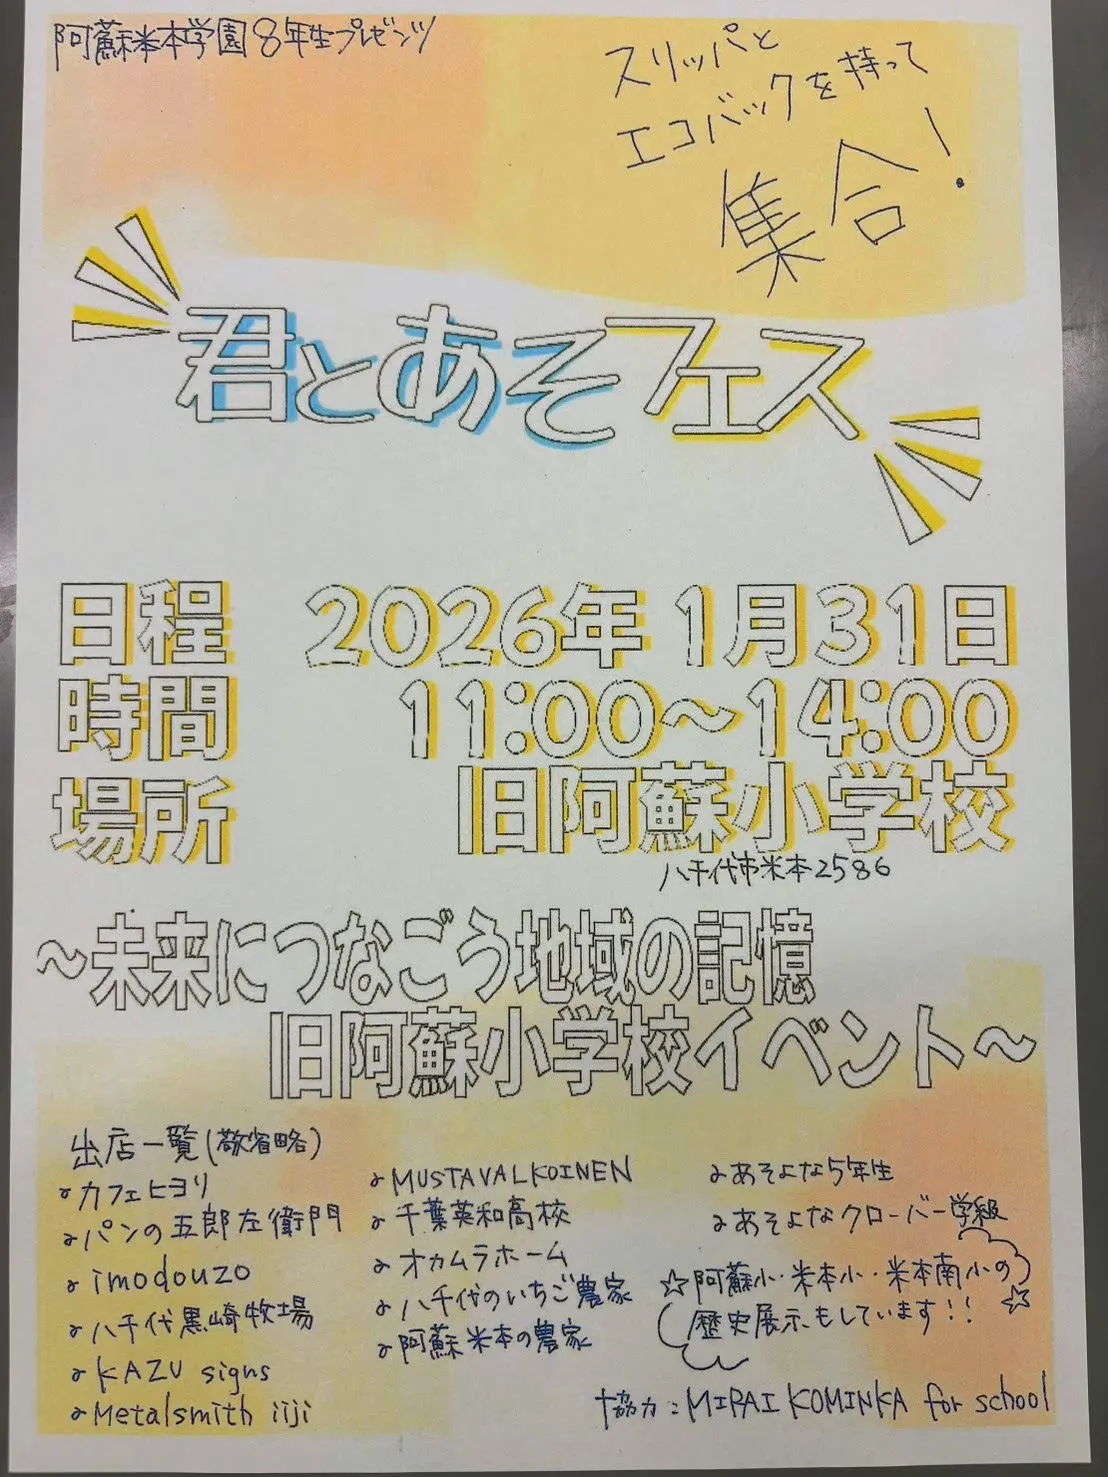 阿蘇米本学園8年生プレゼンツ
スリッパと
エコバックを持って
集合!
君とあそフェス
日程 2026年1月31日
時間 11:00～14:00
場所 旧阿蘇小学校
八千代市米本2586
～未来につなごう地域の記憶
旧阿蘇小学校イベント～
出店一覧(敬省略)
カフェヒヨリ
パンの五郎左衛門
imodouzo
八千代黒崎牧場
KAZU signs
Metalsmith iiji
MUSTAVALKOINEN
千葉英和高校
オカムラホーム
八千代のいちご農家
阿蘇米本の農家
あそよな5年生
あそよなクローバー学級
☆阿蘇小・米本小・米本南小の
歴史展示もしています!!☆
協力:MIRAI KOMINKA for school